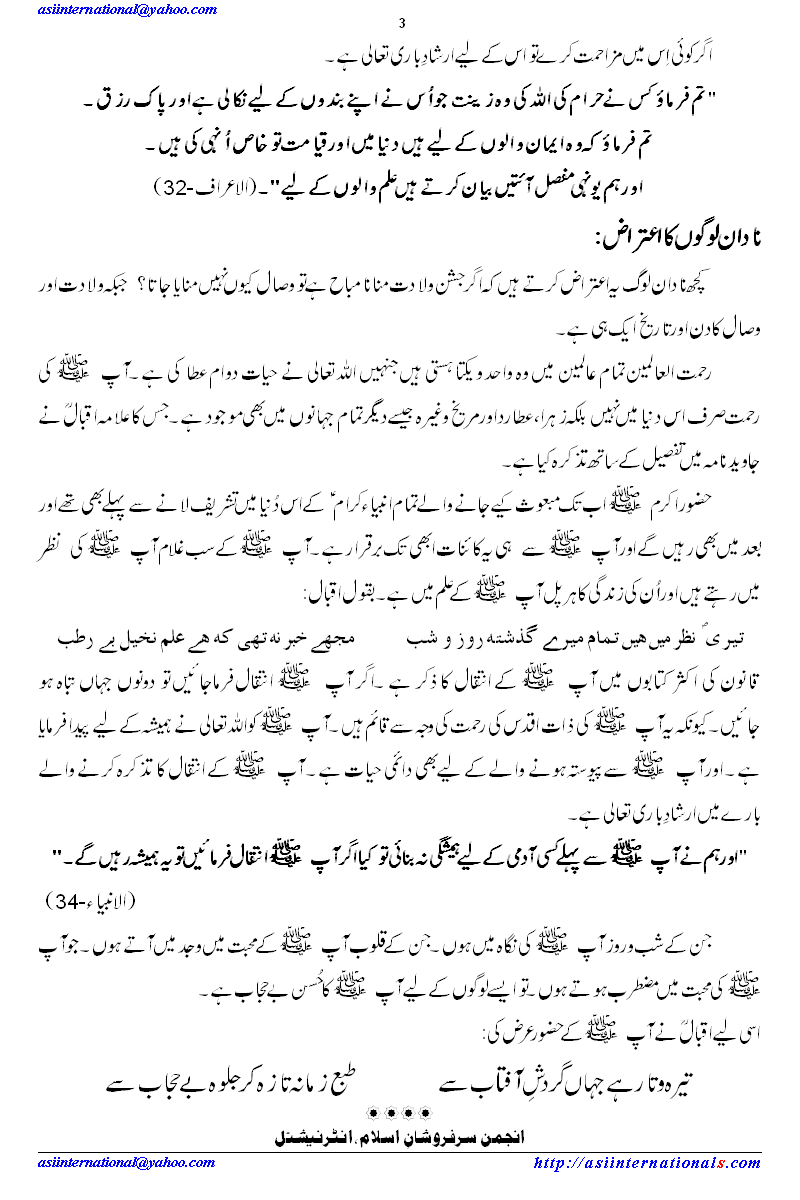 asiinternational@yahoo.com
3
اگر کوئی اِس میں مزاحمت کرے تو اس کے لیے ارشادِ باری تعالی ہے ۔
"تم فرماؤ کس نے حرام کی اللہ کی وہ زینت جو اُس نے اپنے بندوں کے لیے نکالی ہے اور پاک رزق ۔
تم فرماؤ کہ وہ ایمان والوں کے لیے ہیں دنیا میں اور قیامت تو خاص اُنہی کی ہیں ۔
اور ہم یونہی مفصل آئتیں بیان کرتے ہیں علم والوں کے لیے"۔ (الاعراف-32)
نادان لوگوں کا اعتراض:
کچھ نادان لوگ یہ اعتراض کرتے ہیں کہ اگر جشن ولادت منانا مباح ہے تو وصال کیوں نہیں منایا جاتا؟ جبکہ ولادت اور
وصال کا دن اور تاریخ ایک ہی ہے۔
رحمت العالمین تمام عالمین میں وہ واحد و یکتا ہستی ہیں جنہیں اللہ تعالی نے حیات دوام عطا کی ہے ۔ آپ ﷺ کی
رحمت صرف اس دنیا میں نہیں بلکہ زہرا، عطارد اور مریخ وغیرہ جیسے دیگر تمام جہانوں میں بھی موجود ہے ۔ جس کا علامہ اقبالؒ نے
جاوید نامہ میں تفصیل کے ساتھ تذکرہ کیا ہے۔
حضور اکرم ﷺ اب تک مبعوث کیے جانے والے تمام انبیاء کرامؑ کے اس دُنیا میں تشریف لانے سے پہلے بھی تھے اور
بعد میں بھی رہیں گے اور آپ ﷺ سے ہی یہ کائنات ابھی تک برقرار ہے ۔ آپ ﷺ کے سب غلام آپ ﷺ کی نظر
میں رہتے ہیں اور اُن کی زندگی کا ہر پل آپ ﷺ کے علم میں ہے۔ بقول اقبال:
تیریؐ نظر میں ھیں تمام میرے گذشتہ روز و شب مجھے خبر نہ تھی کہ ھے علم نخیل بے رطب
قانون کی اکثر کتابوں میں آپ ﷺ کے انتقال کا ذکر ہے ۔ اگر آپ ﷺ انتقال فرما جائیں تو دونوں جہاں تباہ ہو
جائیں ۔ کیونکہ یہ آپ ﷺ کی ذات اقدس کی رحمت کی وجہ سے قائم ہیں ۔ آپ ﷺ کو اللہ تعالی نے ہمیشہ کے لیے پیدا فرمایا
ہے ۔ اور آپ ﷺ سے پیوستہ ہونے والے کے لیے بھی دائمی حیات ہے ۔ آپ ﷺ کے انتقال کا تذکرہ کرنے والے
بارے میں ارشادِ باری تعالی ہے ۔
"اور ہم نے آپ ﷺ سے پہلے کسی آدمی کے لیے ہمیشگی نہ بنائی تو کیا اگر آپ ﷺ انتقال فرمائیں تو یہ ہمیشہ رہیں گے ۔"
(الانبیاء-34)
جن کے شب و روز آپ ﷺ کی نگاہ میں ہوں ۔ جن کے قلوب آپ ﷺ کے محبت میں وجد میں آتے ہوں ۔ جو آپ
ﷺ کی محبت میں مضطرب ہوتے ہوں ۔ تو ایسے لوگوں کے لیے آپ ﷺ کا حُسن بے حجاب ہے ۔
اسی لیے اقبالؒ نے آپ ﷺ کے حضور عرض کی:
تیرہ و تار ہے جہاں گردشِ آفتاب سے طبع زمانہ تازہ کر جلوہ بے حجاب سے
انجمن سرفروشانِ اسلام، انٹرنیشنل
asiinternational@yahoo.com http://asiinternationals.com